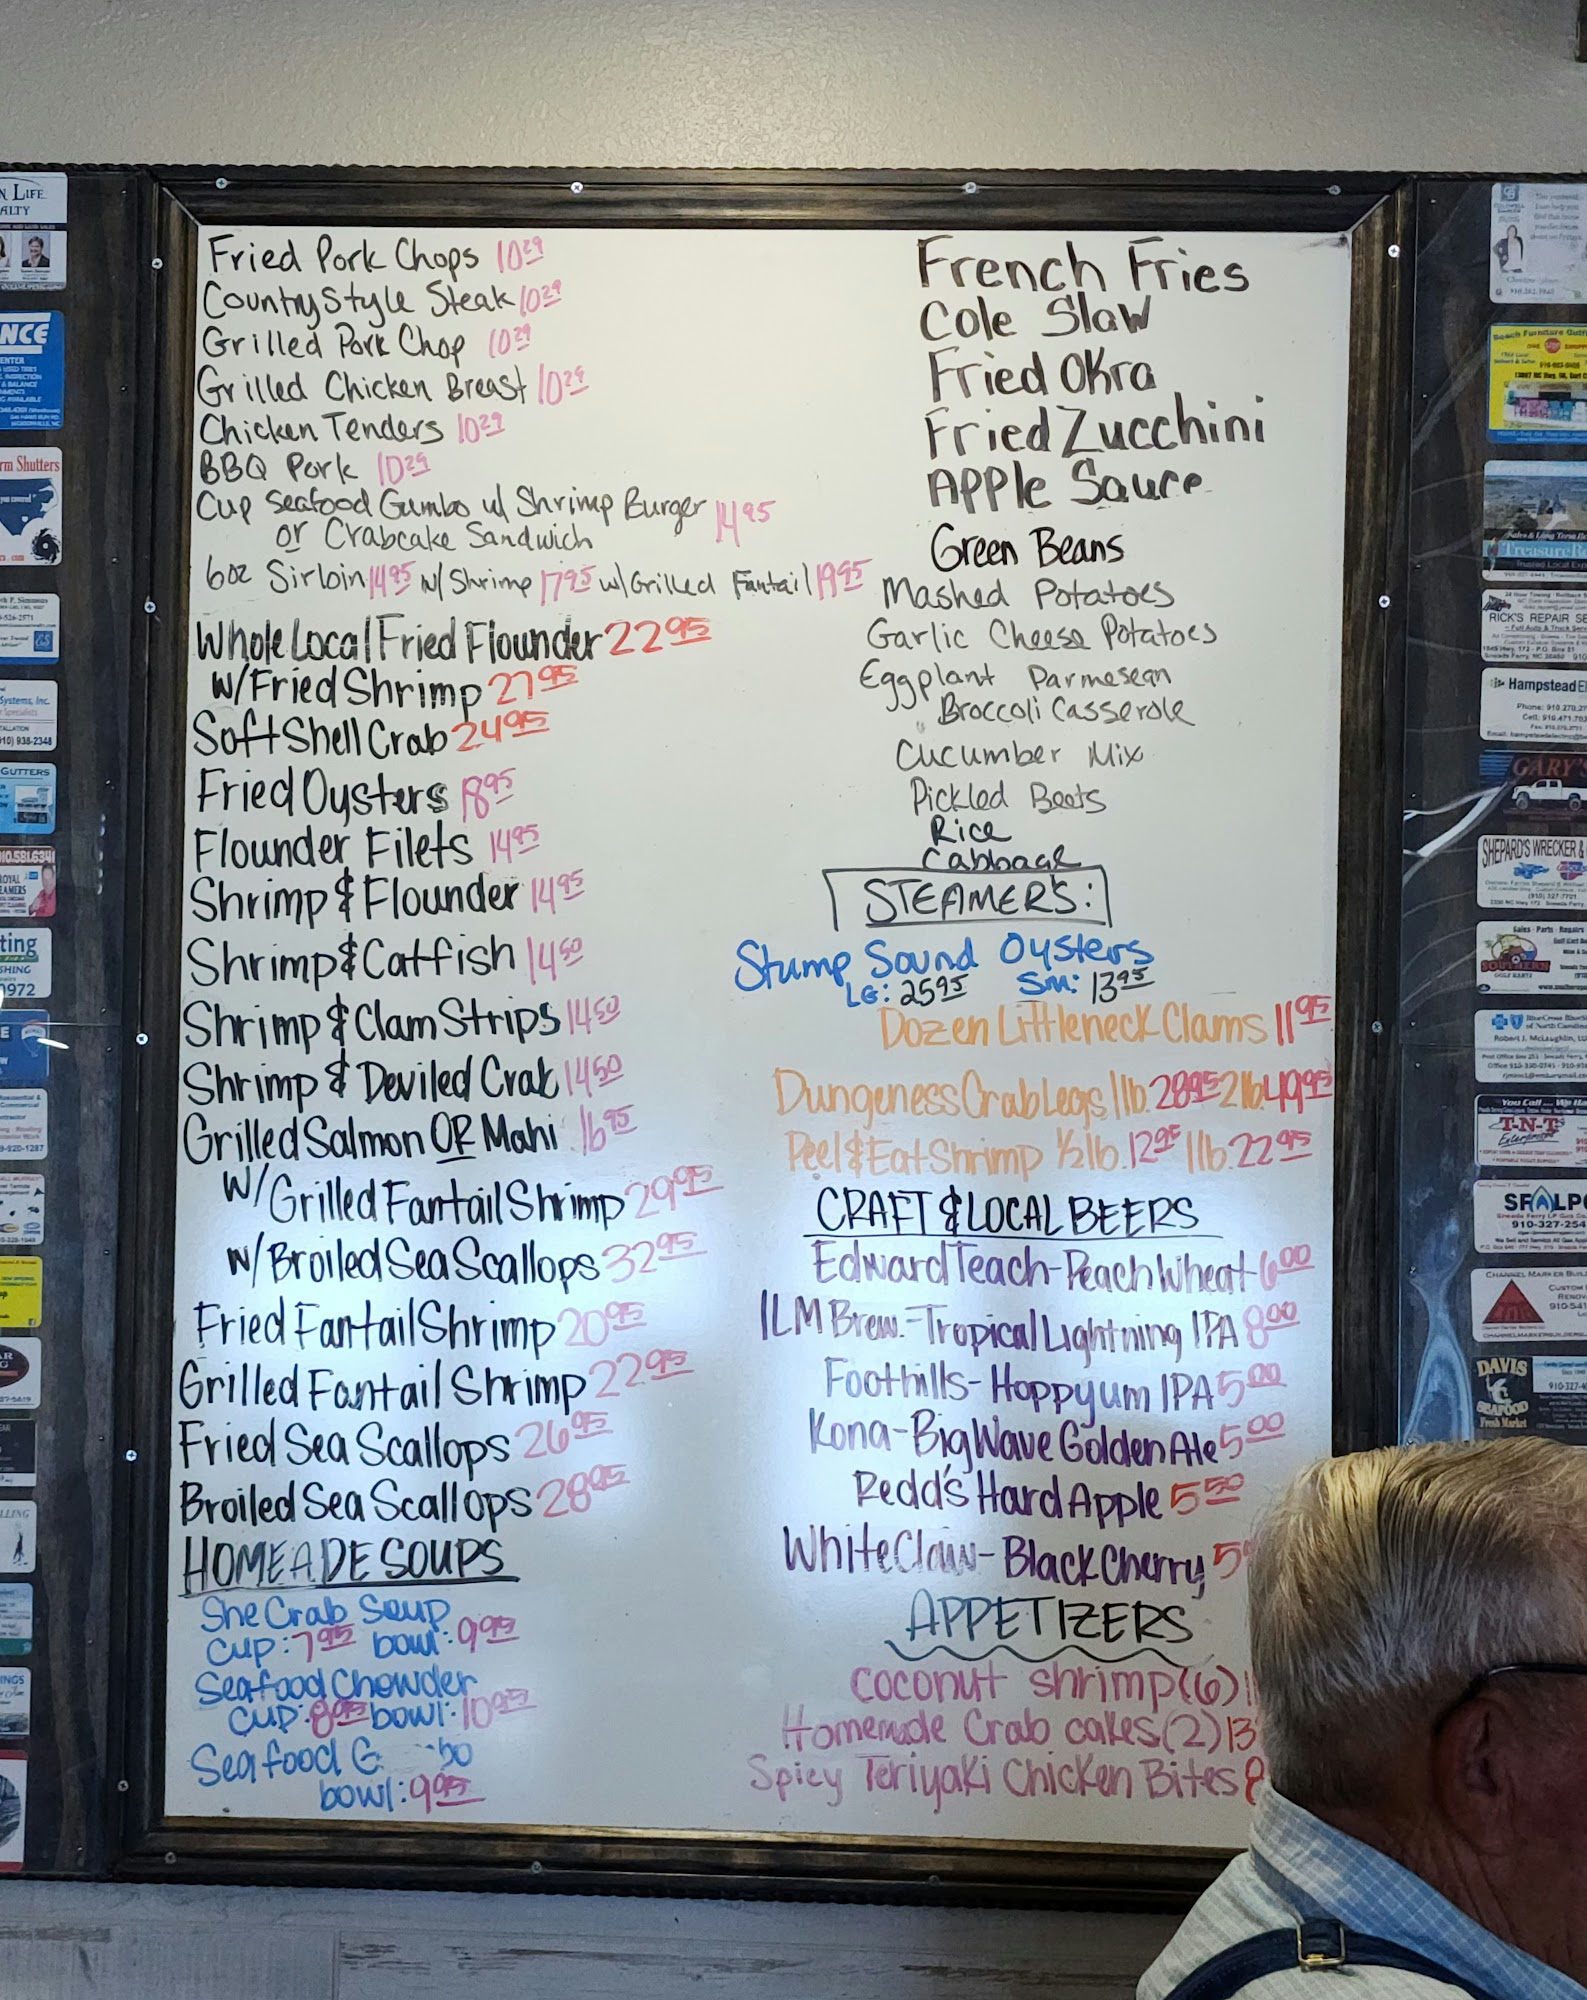 Fried Pork Chops 10.29
Country Style Steak 10.29
Grilled Pork Chop 10.29
Grilled Chicken Breast 10.29
Chicken Tenders 10.29
BBQ Pork 10.29
Cup Seafood Gumbo w/ Shrimp Burger 14.95
or Crabcake Sandwich
6oz Sirloin 14.95 w/ Shrimp 17.95 w/ Grilled Fantail 19.95
Whole Local Fried Flounder 22.95
w/ Fried Shrimp 27.95
Soft Shell Crab 24.95
Fried Oysters 18.95
Flounder Filets 14.95
Shrimp & Flounder 14.95
Shrimp & Catfish 14.50
Shrimp & Clam Strips 14.50
Shrimp & Deviled Crab 14.50
Grilled Salmon OR Mahi 16.95
w/ Grilled Fantail Shrimp 29.95
w/ Broiled Sea Scallops 32.95
Fried Fantail Shrimp 20.95
Grilled Fantail Shrimp 22.95
Fried Sea Scallops 26.95
Broiled Sea Scallops 28.95
HOMEADE SOUPS
She Crab Soup
cup: 7.95 bowl: 9.95
Seafood Chowder
cup: 8.95 bowl: 10.95
Seafood G bo
bowl: 9.95
French Fries
Cole Slaw
Fried Okra
Fried Zucchini
Apple Sauce
Green Beans
Mashed Potatoes
Garlic Cheese Potatoes
Eggplant Parmesean
Broccoli Casserole
Cucumber Mix
Pickled Beets
Rice
Cabbage
STEAMERS:
Stump Sound Oysters
LG: 25.95 Sm: 13.95
Dozen Littleneck Clams 11.95
Dungeness Crab Legs 1lb. 28.95 2lb. 49.95
Peel & Eat Shrimp 1/2 lb. 12.95 1lb. 22.95
CRAFT & LOCAL BEERS
Edward Teach - Peach Wheat 6.00
ILM Brew. - Tropical Lightning IPA 8.00
Foothills - Hoppyum IPA 5.00
Kona - Big Wave Golden Ale 5.00
Redd's Hard Apple 5.50
White Claw - Black Cherry 5
APPETIZERS
Coconut shrimp (6) 1
Homemade Crab cakes (2) 13
Spicy Teriyaki Chicken Bites 8
LIFE
NCE
Shutters
Systems, Inc.
938-2348
GUTTERS
910.581.6341
RICK'S REPAIR
Hampstead
GARY'S
SHEPARD'S WRECKER &
SOUTHERN
BlueCross
of North Carolina
Robert J. McLaughlin
You Call
T-N-T
910-327-254
CHANNEL MARKER
DAVIS
SEAFOOD
Fresh Market